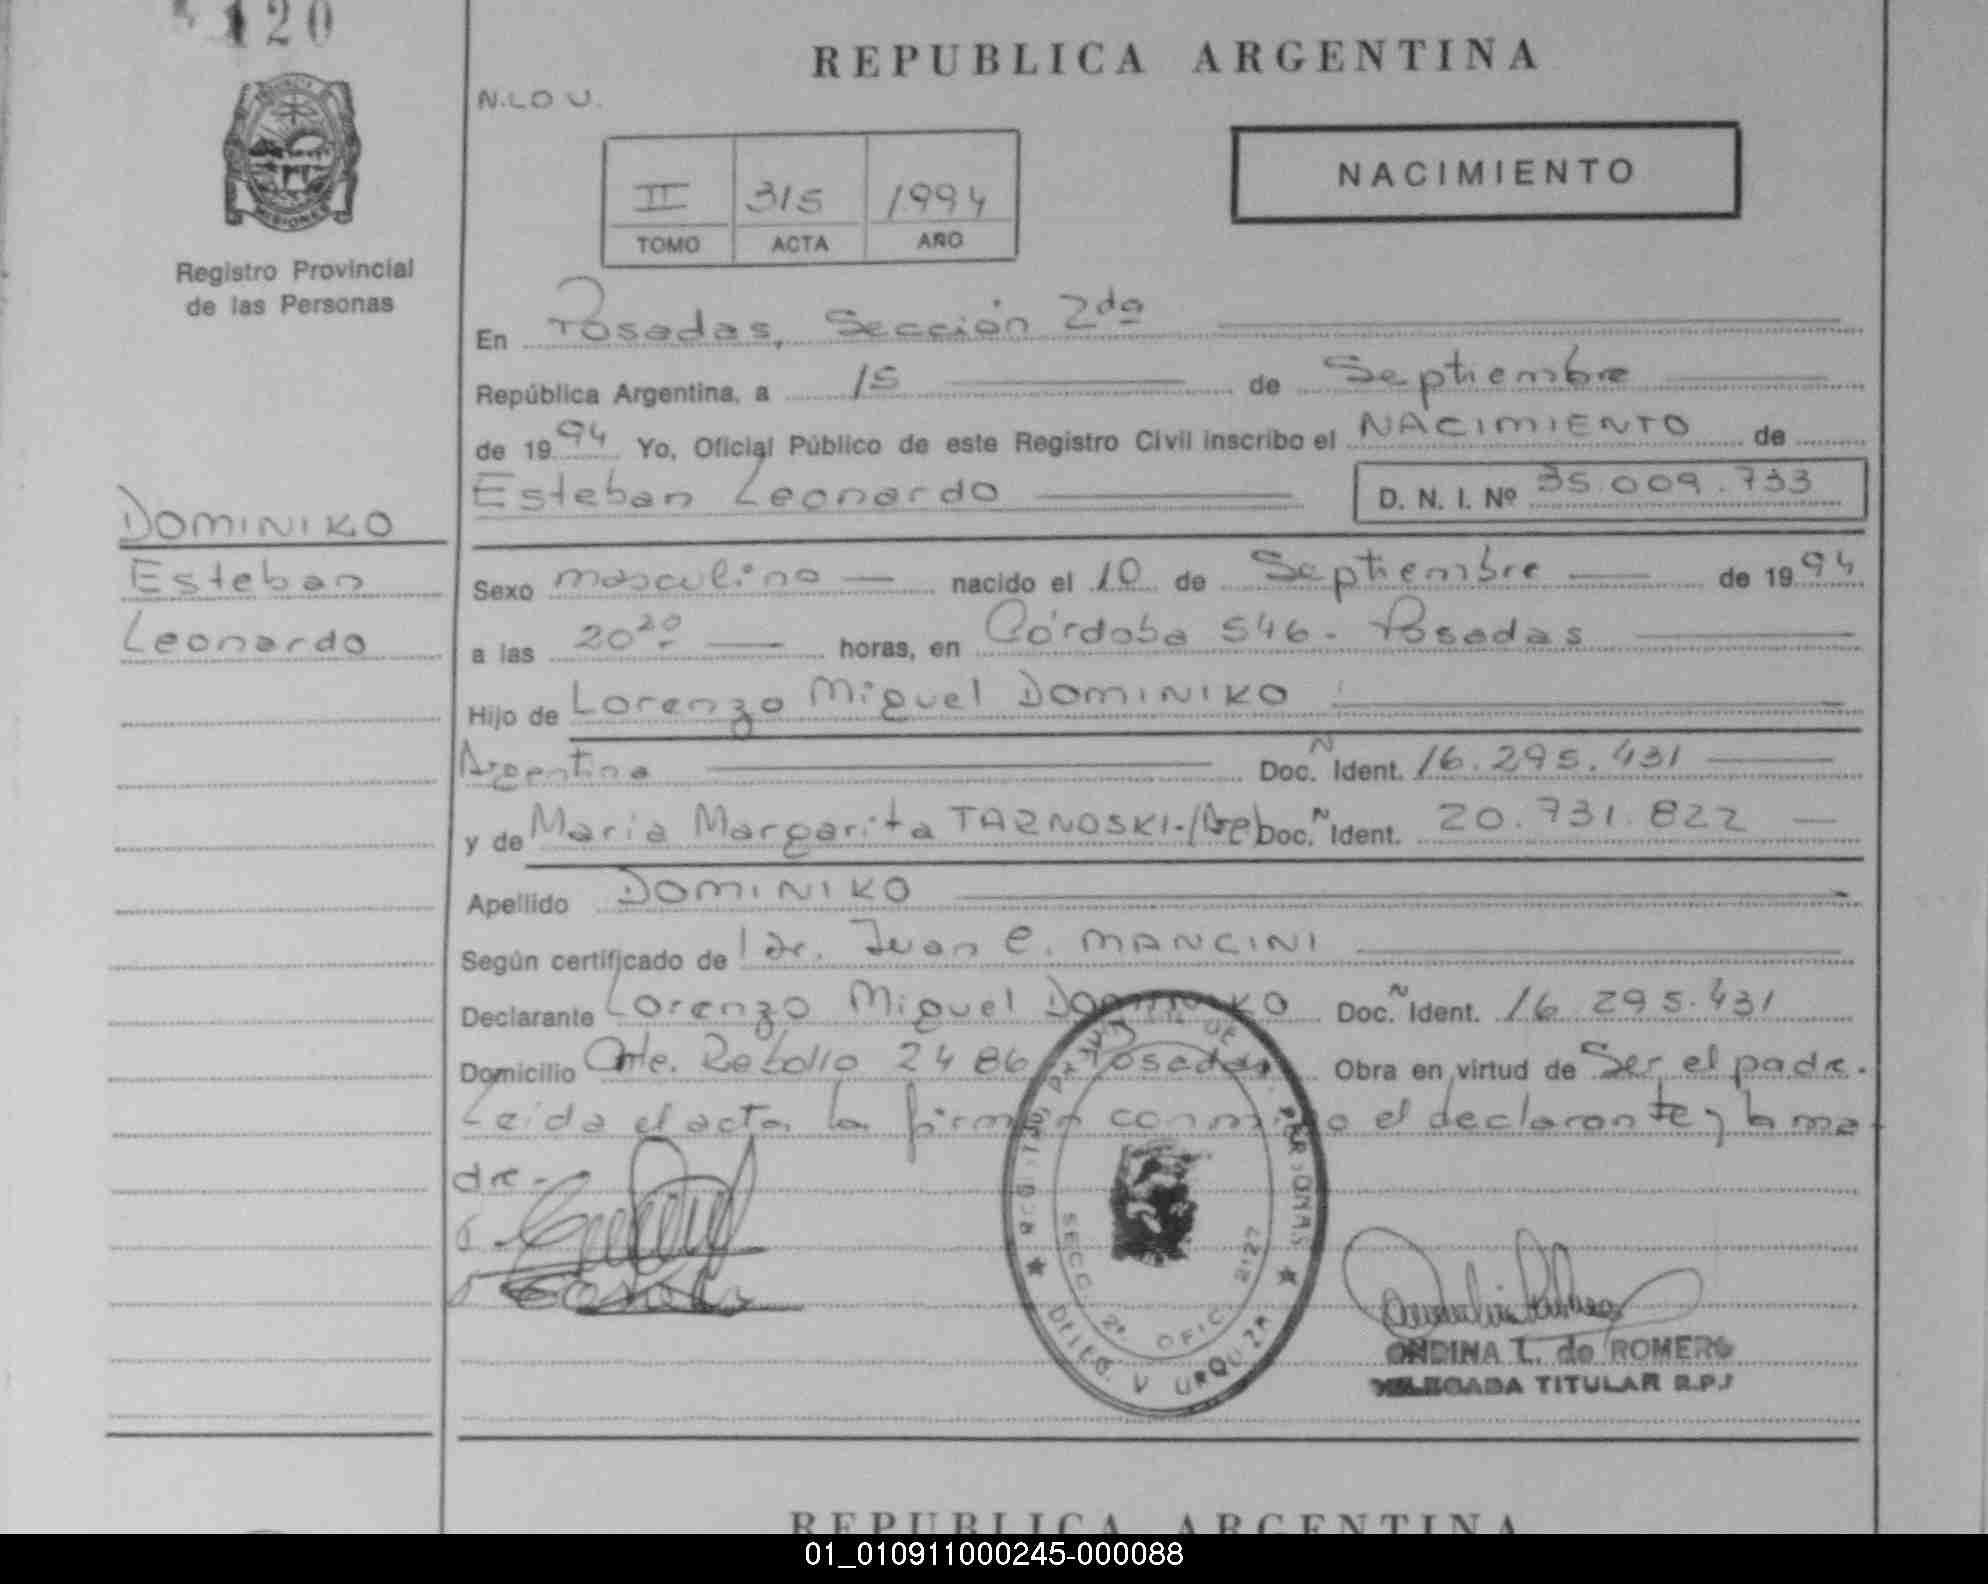 120
REPUBLICA ARGENTINA
N.LO U.
MISIONES
NACIMIENTO
II 315 1994
TOMO ACTA AÑO
Registro Provincial
de las Personas
En Posadas, Sección 2da
República Argentina, a 15 de Septiembre
de 1994 Yo, Oficial Público de este Registro Civil inscribo el NACIMIENTO de
Esteban Leonardo D. N. I. Nº 35.009.733
DOMINIKO
Esteban
Leonardo
Sexo masculino nacido el 10 de Septiembre de 1994
a las 20 20 horas, en Córdoba 546 - Posadas
Hijo de Lorenzo Miguel DOMINIKO
Argentina Doc. N Ident. 16.295.431
y de Maria Margarita TARNOSKI-(Arg) Doc. N Ident. 20.731.822
Apellido DOMINIKO
Según certificado de Dr. Juan C. MANCINI
Declarante Lorenzo Miguel DOMINIKO Doc. N Ident. 16.295.431
Domicilio 2486 Posadas Obra en virtud de Ser el padre.
Leida el acta, la firman conmigo el declarante y la ma
dre-
REGISTRO DE PERSONAS
SECC. 2ª OFIC. 2127
DPTO. V URQUIZA
ONDINA L. de ROMERO
DELEGADA TITULAR R.P.
REPUBLICA ARGENTINA
01_010911000245-000088